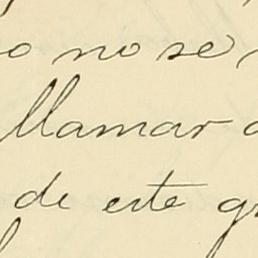 no se
llamar
de este